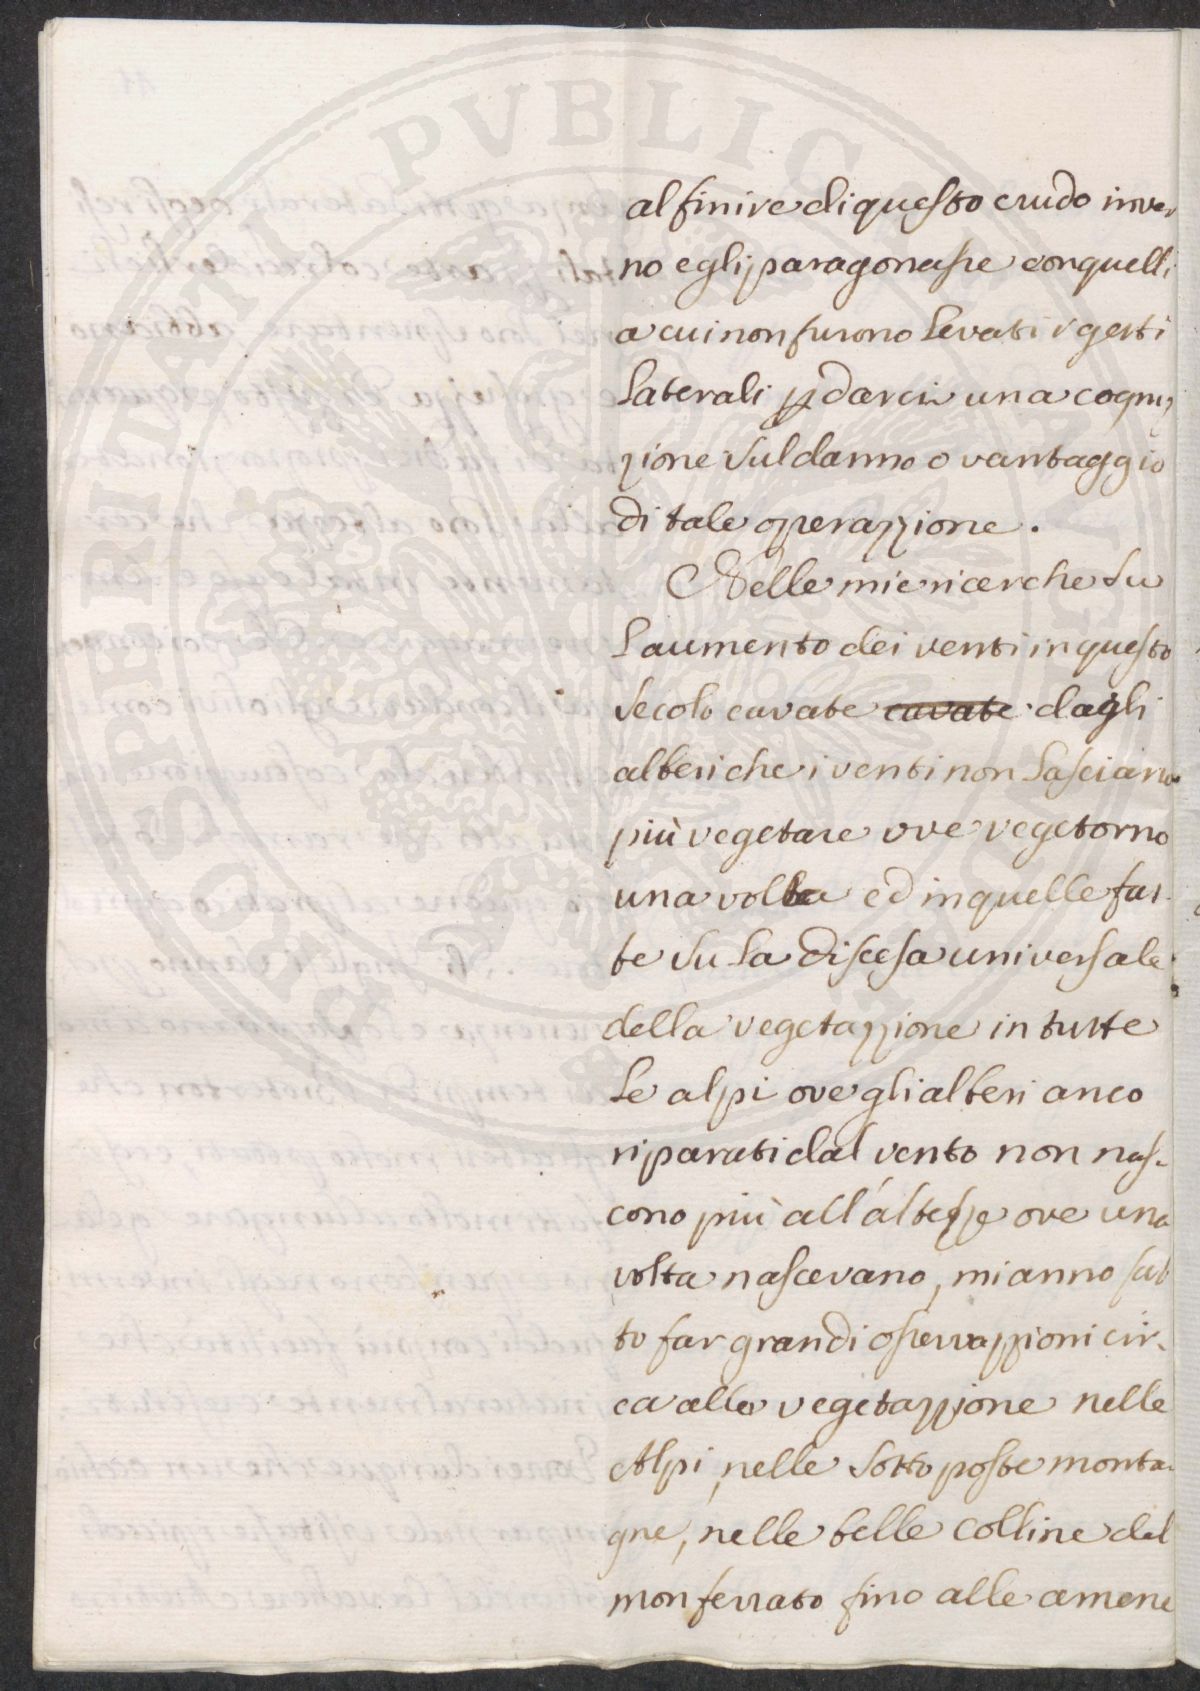 al finire di questo crudo inver
no egli paragonasse con quelli
a cui non furono levati i getti
laterali p darci una cogni
zione sul danno o vantaggio
di tale operazzione.
Nelle mie ricerche su
laumento dei venti in questo
secolo cavate cavate dagli
alberi che i venti non lasciano
più vegetare ove vegetorno
una volta ed in quelle fat
te su la discesa universale
della vegetazzione in tutte
le alpi ove gli alberi anco
riparati dal vento non nas-
cono più all'altezze ove una
volta nascevano, mi anno fat
to far grandi osservazzioni cir-
ca alla vegetazzione nelle
Alpi, nelle sotto poste monta-
gne, nelle belle colline del
monferrato fino alle amene
PROSPERITATI PVBLICAE